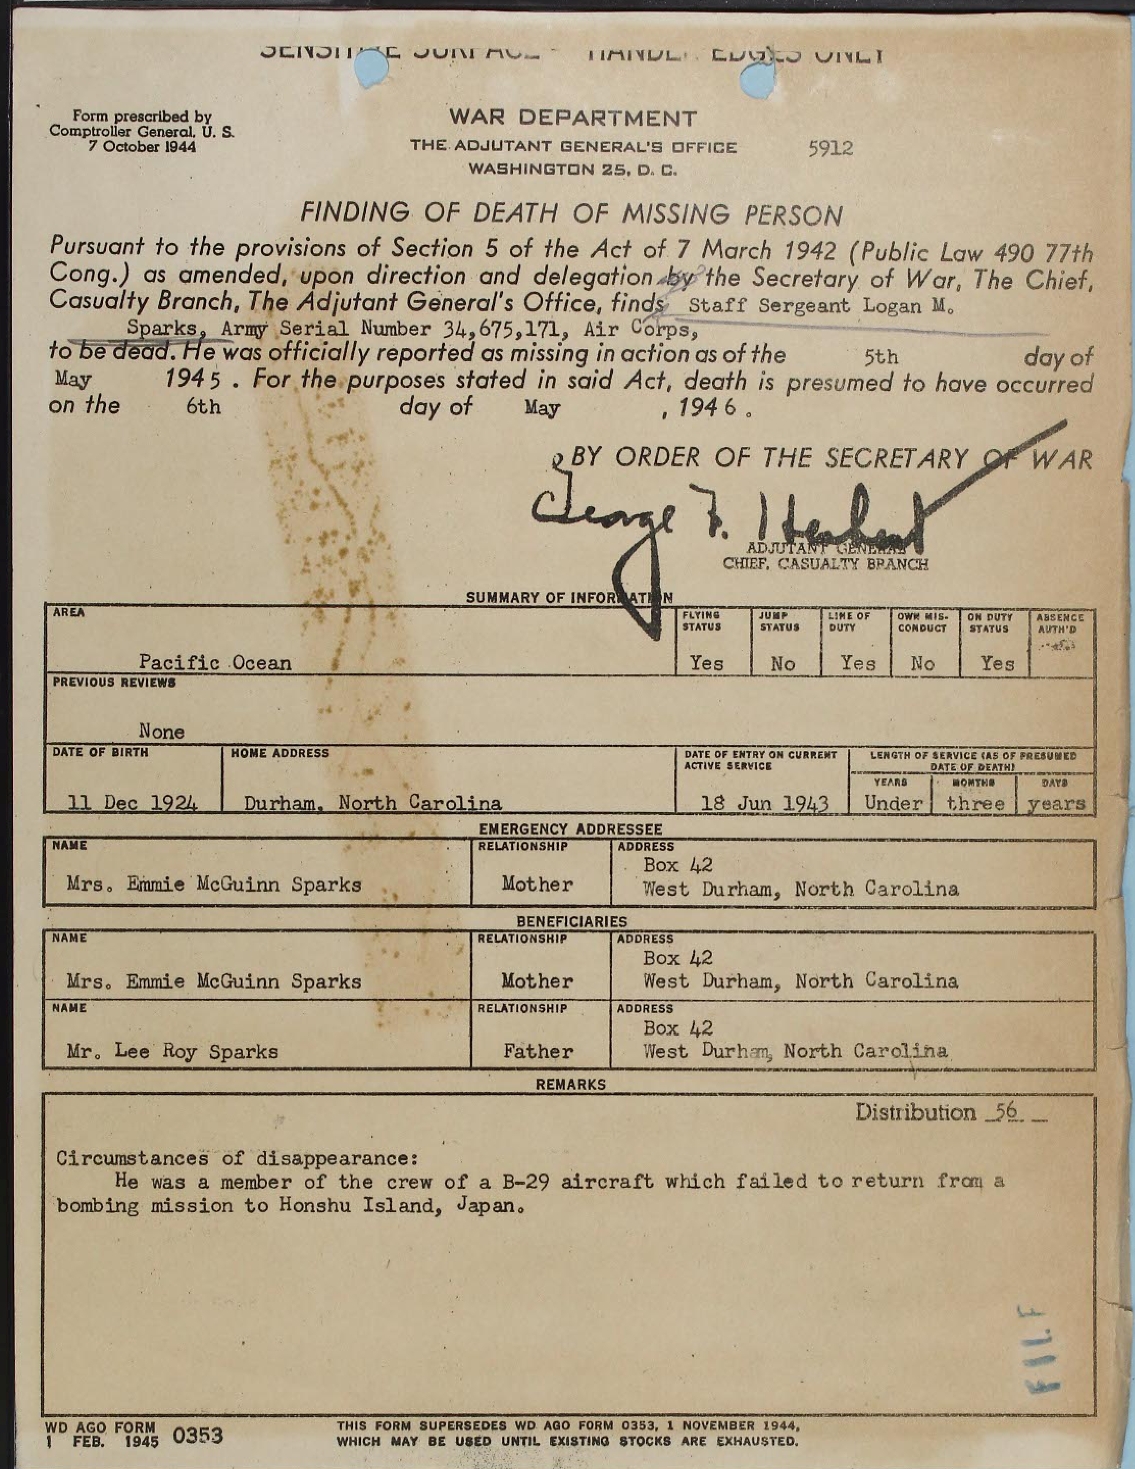 SENSITIVE SURFACE - HANDLE EDGES ONLY
Form prescribed by
Comptroller General, U. S.
7 October 1944
WAR DEPARTMENT
THE ADJUTANT GENERAL'S OFFICE
WASHINGTON 25, D. C.
5912
FINDING OF DEATH OF MISSING PERSON
Pursuant to the provisions of Section 5 of the Act of 7 March 1942 (Public Law 490 77th
Cong.) as amended, upon direction and delegation by the Secretary of War, The Chief,
Casualty Branch, The Adjutant General's Office, finds Staff Sergeant Logan M.
Sparks, Army Serial Number 34,675,171, Air Corps,
to be dead. He was officially reported as missing in action as of the 5th day of
May 1945. For the purposes stated in said Act, death is presumed to have occurred
on the 6th day of May, 1946.
BY ORDER OF THE SECRETARY OF WAR
George F. Herbert
ADJUTANT GENERAL
CHIEF, CASUALTY BRANCH
SUMMARY OF INFORMATION
AREA
Pacific Ocean
FLYING STATUS
Yes
JUMP STATUS
No
LINE OF DUTY
Yes
OWN MIS-CONDUCT
No
ON DUTY STATUS
Yes
ABSENCE AUTH'D
PREVIOUS REVIEWS
None
DATE OF BIRTH
11 Dec 1924
HOME ADDRESS
Durham, North Carolina
DATE OF ENTRY ON CURRENT
ACTIVE SERVICE
18 Jun 1943
LENGTH OF SERVICE (AS OF PRESUMED
DATE OF DEATH)
YEARS MONTHS DAYS
Under three years
EMERGENCY ADDRESSEE
NAME RELATIONSHIP ADDRESS
Box 42
Mrs. Emmie McGuinn Sparks Mother West Durham, North Carolina
BENEFICIARIES
NAME RELATIONSHIP ADDRESS
Box 42
Mrs. Emmie McGuinn Sparks Mother West Durham, North Carolina
NAME RELATIONSHIP ADDRESS
Box 42
Mr. Lee Roy Sparks Father West Durham, North Carolina
REMARKS
Distribution 56
Circumstances of disappearance:
He was a member of the crew of a B-29 aircraft which failed to return from a
bombing mission to Honshu Island, Japan.
FILE
WD AGO FORM
1 FEB. 1945 0353
THIS FORM SUPERSEDES WD AGO FORM 0353, 1 NOVEMBER 1944,
WHICH MAY BE USED UNTIL EXISTING STOCKS ARE EXHAUSTED.